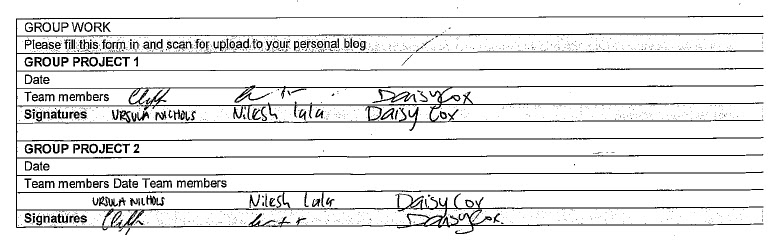 GROUP WORK
Please fill this form in and scan for upload to your personal blog
GROUP PROJECT 1
Date
Team members Cliff Daisy Cox
Signatures URSULA NICHOLS Nilesh Lala Daisy Cox
GROUP PROJECT 2
Date
Team members Date Team members
URSULA NICHOLS Nilesh Lala Daisy Cox
Signatures Cliff Daisy Cox